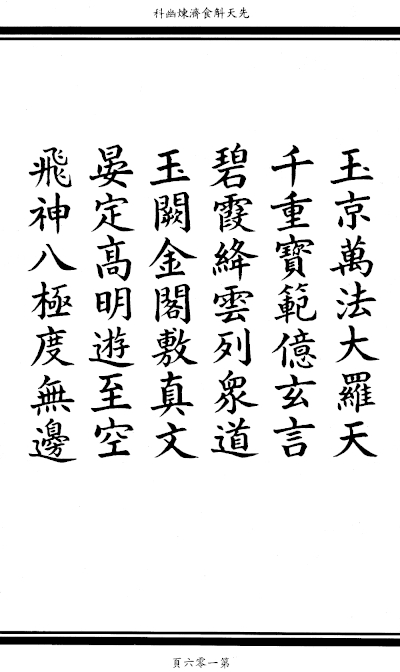 先天斛食濟煉幽科
玉京萬法大羅天
千重寶範億玄言
碧霞絳雲列衆道
玉闕金閣敷真文
晏定高明遊至空
飛神八極度無邊
第一零六頁